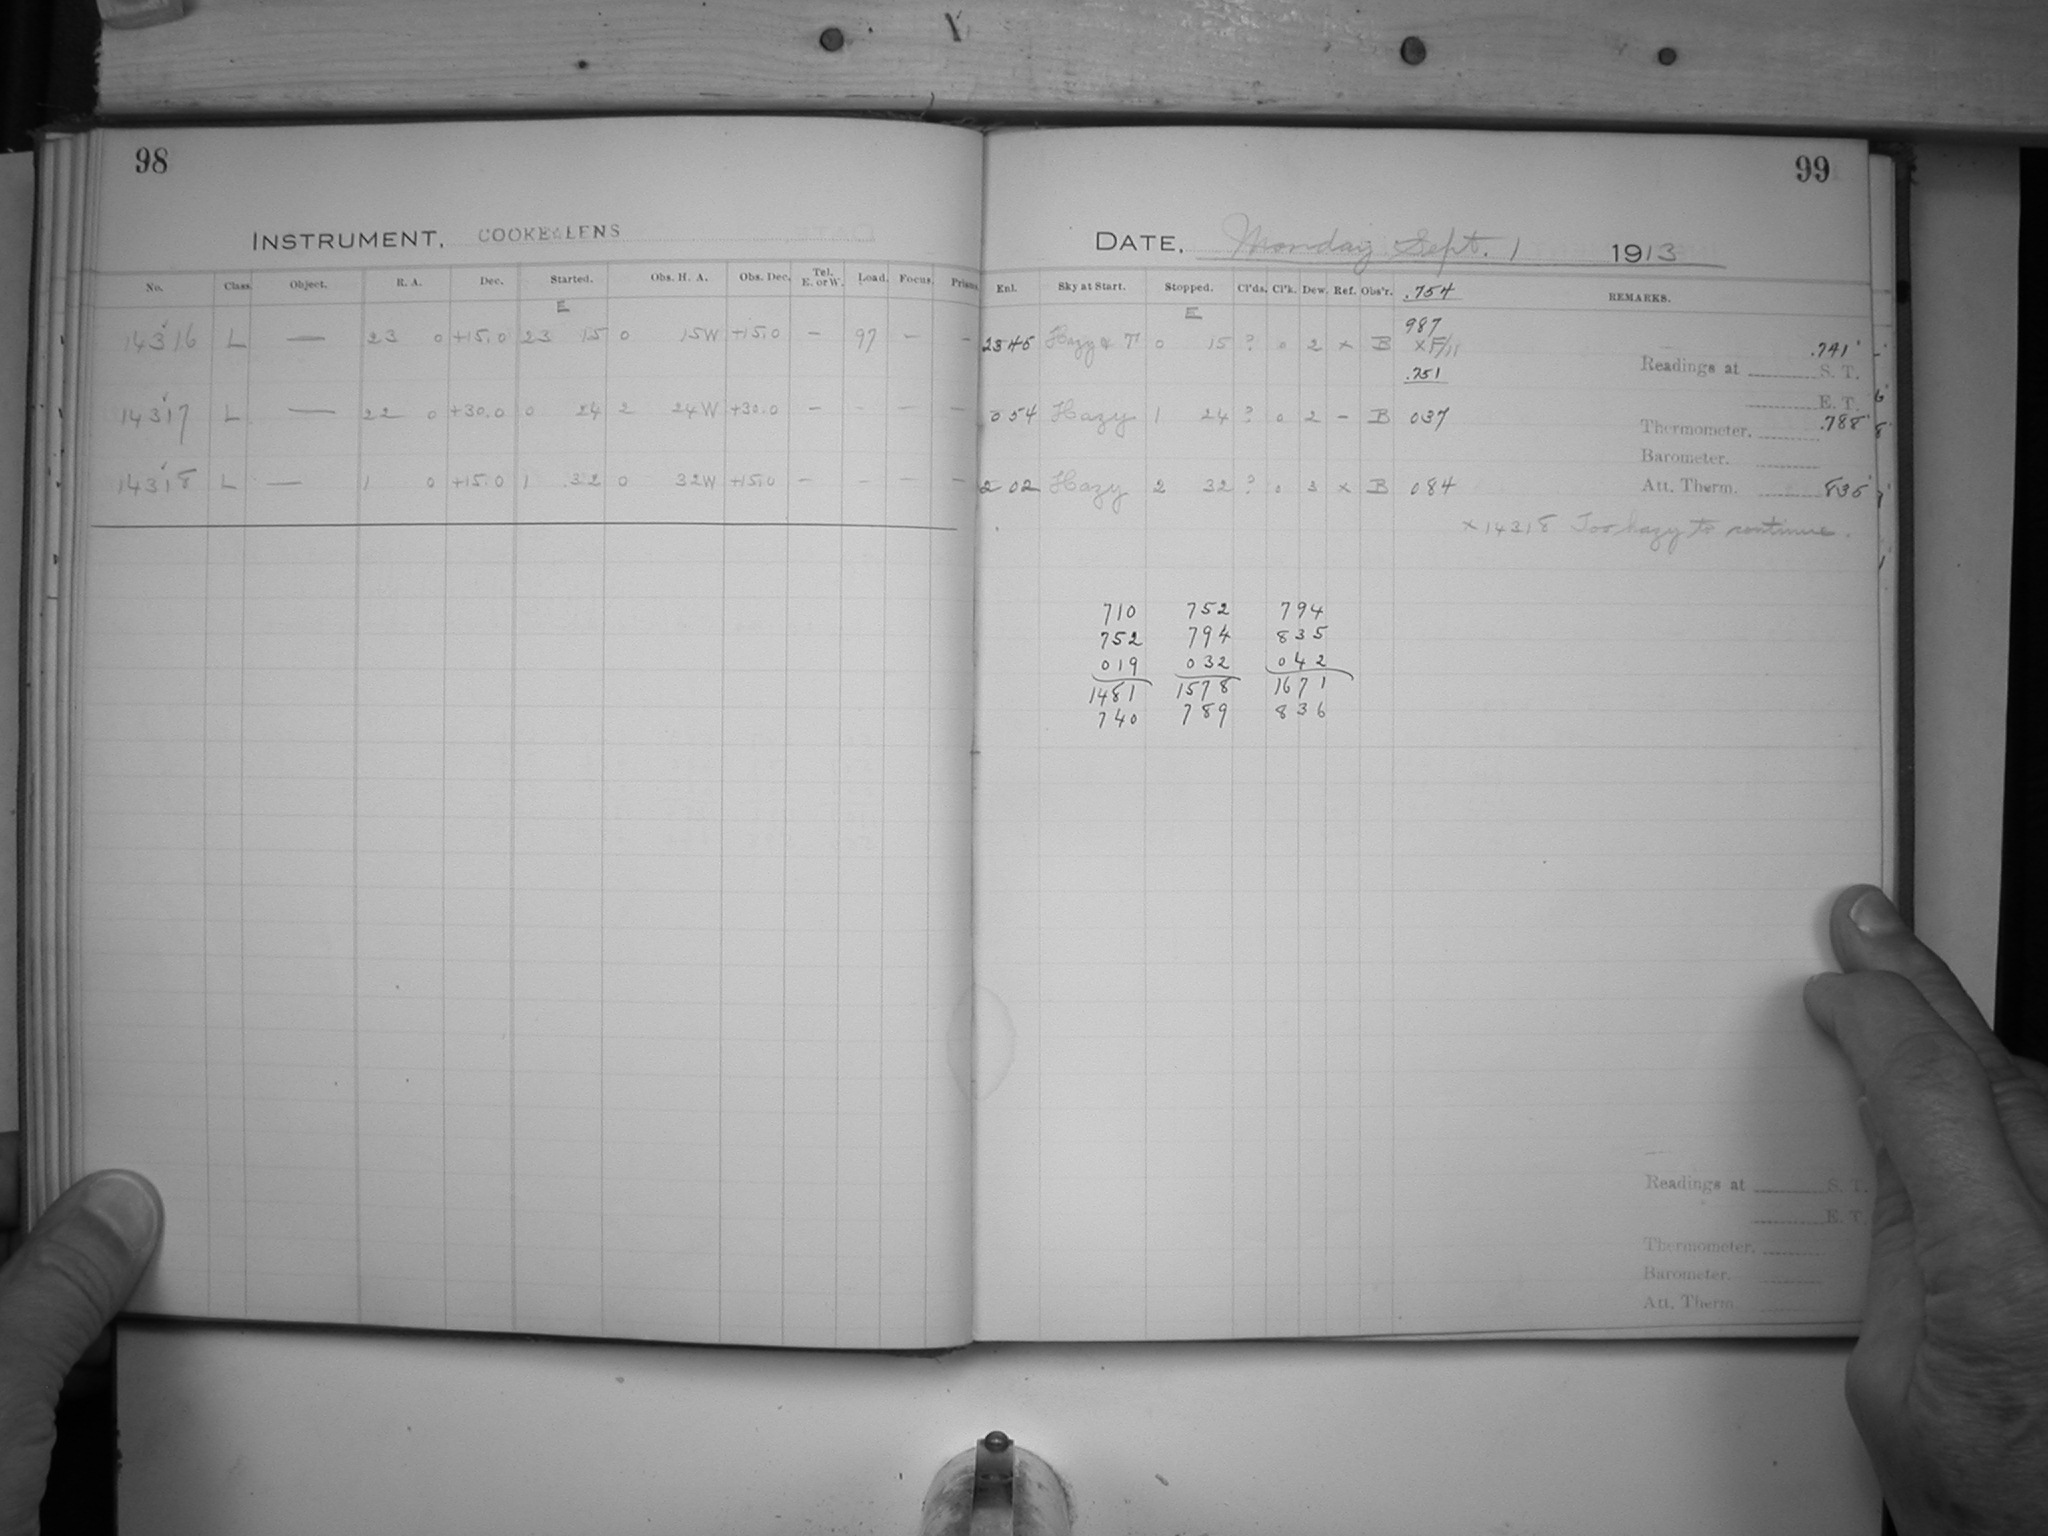 98
INSTRUMENT, COOKE LENS
No. Class. Object. R. A. Dec. Started. Obs. H. A. Obs. Dec. Tel. E. or W. Load. Focus. Prisms.
E
14316 L — 23 0 +15.0 23 15 0 15W +15.0 – 97 – –
14317 L — 22 0 +30.0 0 24 2 24W +30.0 – – – –
14318 L — 1 0 +15.0 1 32 0 32W +15.0 – – – –
99
DATE, Monday Sept. 1 1913
Enl. Sky at Start. Stopped. Cl'ds. Cl'k. Dew. Ref. Obs'r. .754 REMARKS.
E
987
2345 Hazy & T 0 15 ? 0 2 x B x F/11
.741
Readings at S. T.
.751
E. T.
054 Hazy 1 24 ? 0 2 – B 037
Thermometer. .788
Barometer.
202 Hazy 2 32 ? 0 3 x B 084
Att. Therm. 835
x 14318 Too hazy to continue.
710 752 794
752 794 835
019 032 042
1481 1578 1671
740 789 836
Readings at S. T.
E. T.
Thermometer.
Barometer.
Att. Therm.